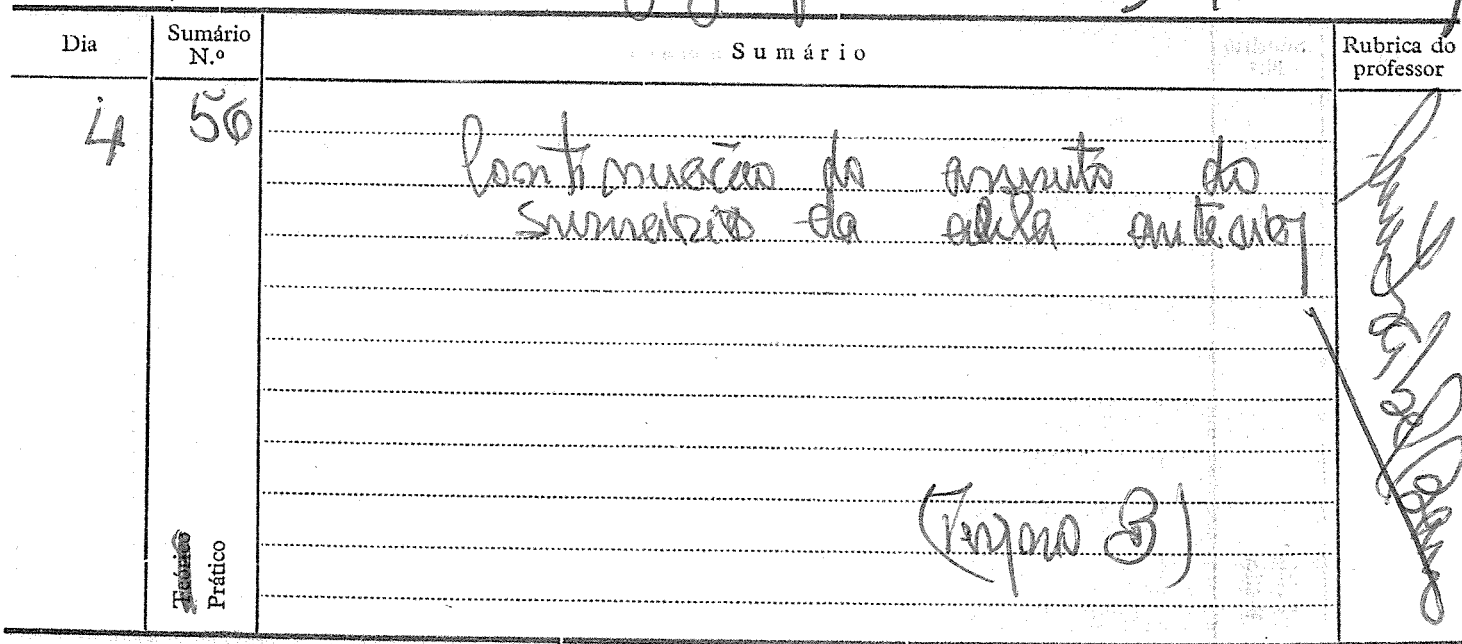 Dia
Sumário N.º
Sumário
Rubrica do professor
4
56
Continuação do assunto do
sumário da aula anterior
(Turma B)
Teórico
Prático